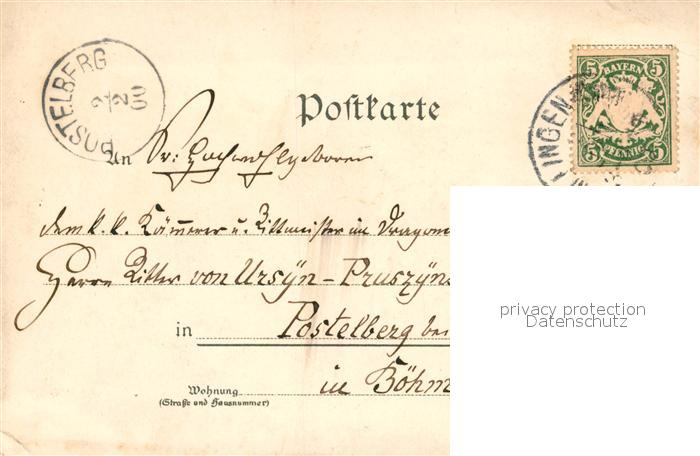 POSTELBERG
2/2
00
BAYERN
5 5
5 PFENNIG 5
LINGEN
Postkarte
An Sr: Hochwohlgeboren
dem k. k. Kämmerer u. Rittmeister im Dragone
Herrn Ritter von Ursÿn-Pruszÿns
in Postelberg bei
in Böhm
Wohnung
(Straße und Hausnummer)
privacy protection
Datenschutz